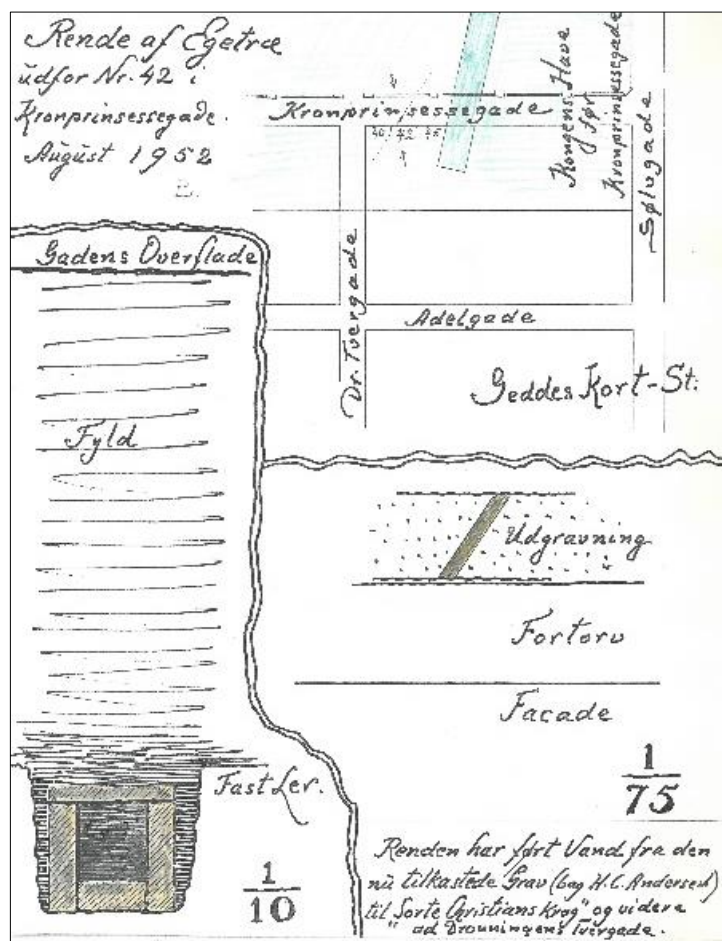 Rende af Egetræ
udfor Nr. 42 i
Kronprinsessegade.
August 1952
Kronprinsessegade
40 42
Kongens Have
før
Kronprinsessegade
Sølvgade
Dr. Tvergade
Adelgade
Geddes Kort-St:
Gadens Overflade
Fyld
Fast Ler.
1
10
Udgravning
Fortorv
Facade
1
75
Renden har ført Vand fra den
nu tilkastede Grav (bag H.C. Andersen)
til "Sorte Christians Krog" og videre
ad Dronningens Tvergade.